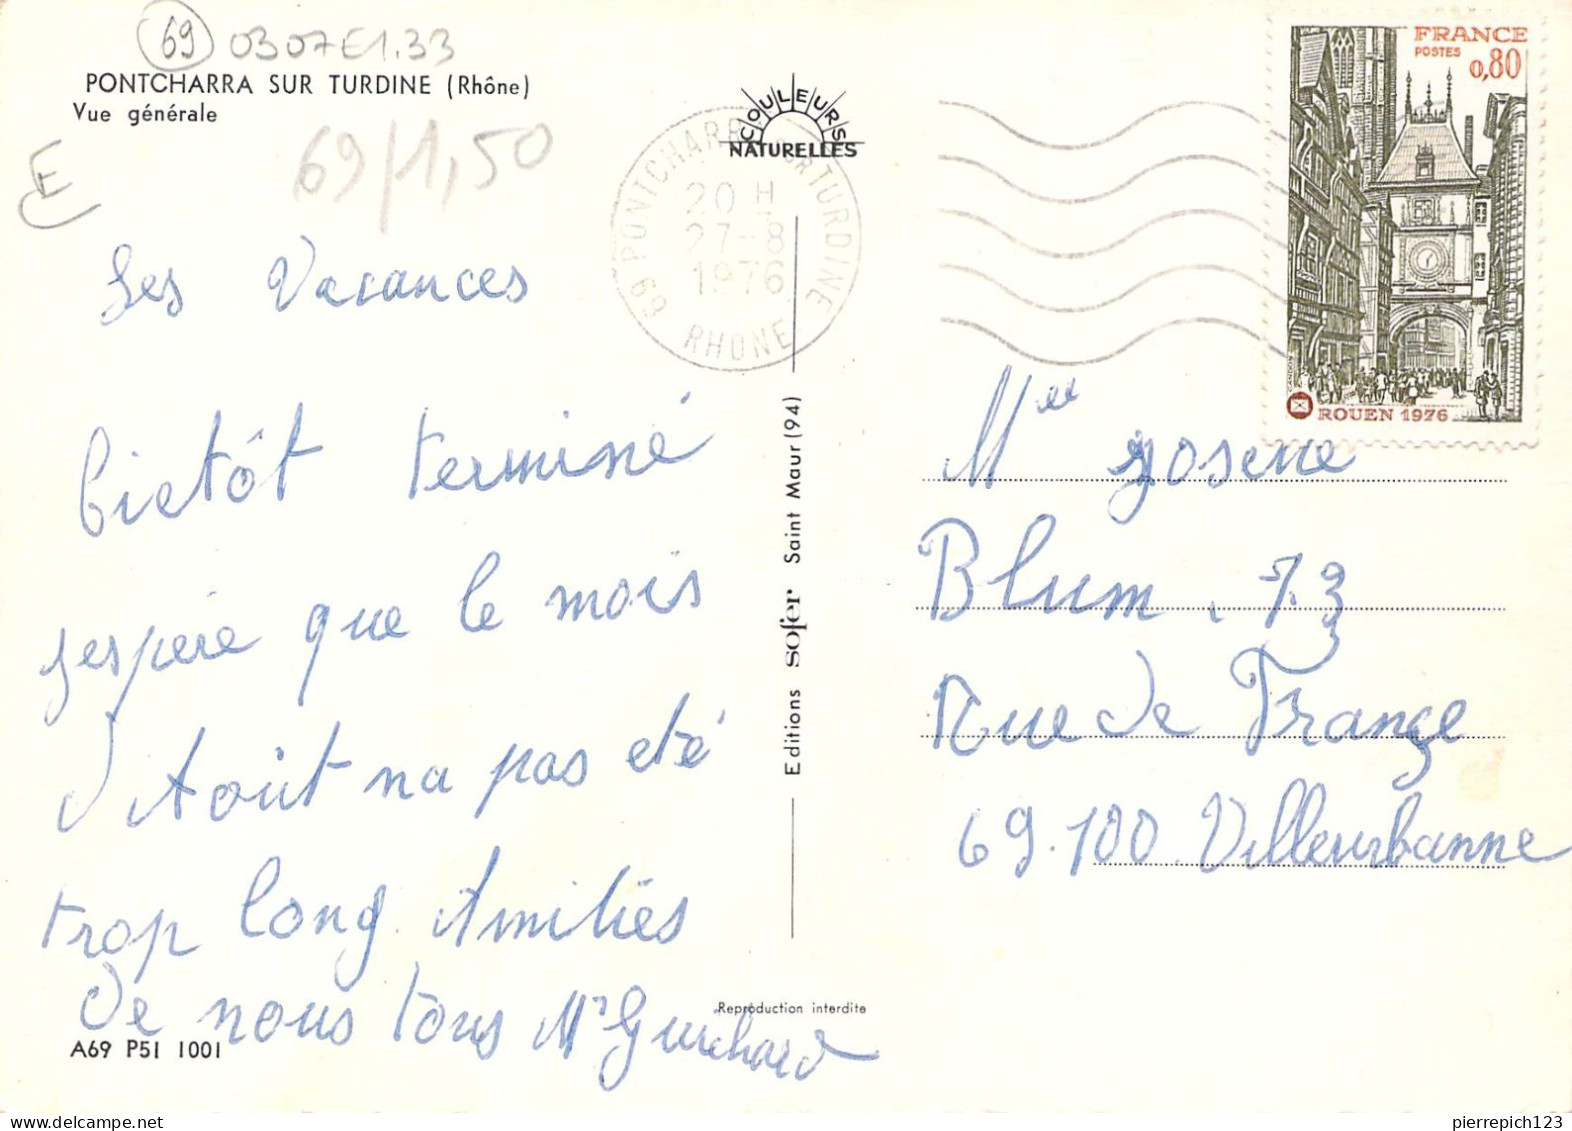 69 0307E1.33
PONTCHARRA SUR TURDINE (Rhône)
Vue générale
E
69/1,50
COULEURS
NATURELLES
69 PONTCHARRA SUR TURDINE
20 H
27-8
1976
RHONE
FRANCE
POSTES
0,80
ROUEN 1976
Les Vacances
bietôt terminé
jespére que le mois
d'Aoùt na pas eté
trop long. Amitiés
De nous tous Mr Guichard
A69 P51 1001
Editions sofer Saint Maur (94)
Reproduction interdite
Mlle Josene
Blum. 73
Rue de France
69.100 Villeurbanne
pierrepich123